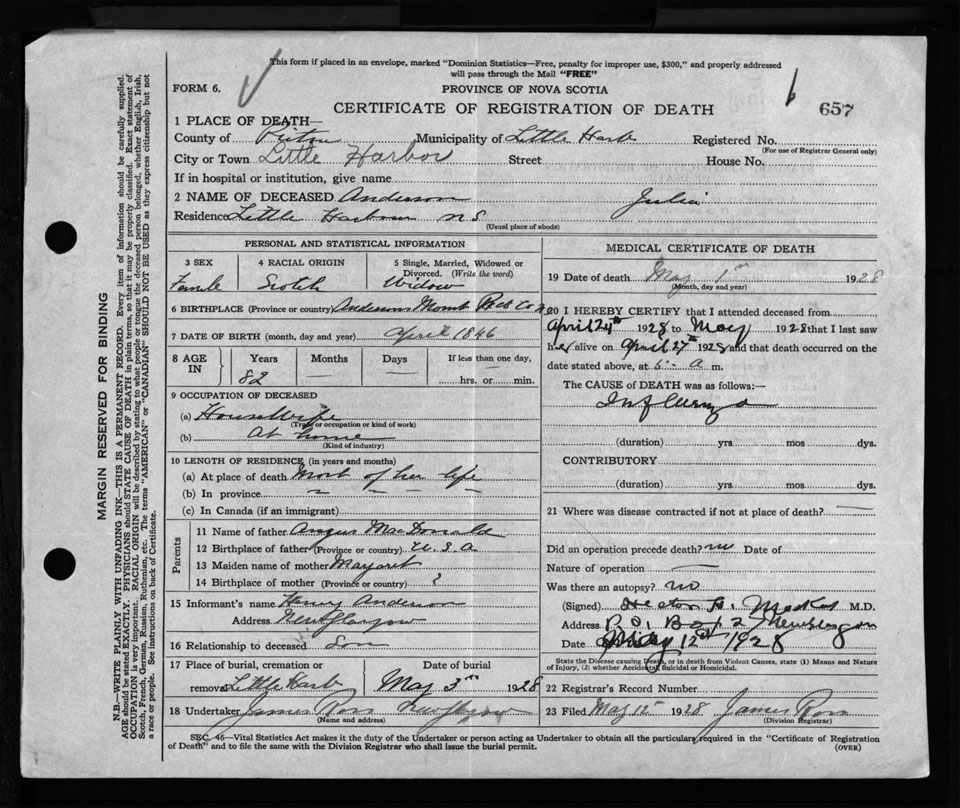 This form if placed in an envelope, marked "Dominion Statistics—Free, penalty for improper use, $300," and properly addressed
will pass through the Mail "FREE"
FORM 6.
PROVINCE OF NOVA SCOTIA
CERTIFICATE OF REGISTRATION OF DEATH
657
1 PLACE OF DEATH—
County of Pictou Municipality of Little Harb Registered No.
(For use of Registrar General only)
City or Town Little Harbor Street House No.
If in hospital or institution, give name
2 NAME OF DECEASED Anderson Julia
Residence Little Harbour N.S
(Usual place of abode)
PERSONAL AND STATISTICAL INFORMATION
3 SEX
4 RACIAL ORIGIN
5 Single, Married, Widowed or
Divorced. (Write the word)
Female
Scotch
Widow
6 BIRTHPLACE (Province or country) Andersons Mount
7 DATE OF BIRTH (month, day and year) April 1846
8 AGE
IN
Years
Months
Days
If less than one day,
82 — — —
hrs. or min.
9 OCCUPATION OF DECEASED
(a) HouseWife
(Trade or occupation or kind of work)
(b) At home
(Kind of industry)
10 LENGTH OF RESIDENCE (in years and months)
(a) At place of death Most of her life
(b) In province — — — —
(c) In Canada (if an immigrant)
Parents
11 Name of father Angus MacDonald
12 Birthplace of father (Province or country) U.S.A
13 Maiden name of mother Margaret
14 Birthplace of mother (Province or country) ?
15 Informant's name Henry Anderson
Address New Glasgow
16 Relationship to deceased Son
17 Place of burial, cremation or
removal Little Harb
Date of burial
May 3rd 1928
18 Undertaker James Ross New Glasgow
(Name and address)
MEDICAL CERTIFICATE OF DEATH
19 Date of death May 1st 1928
(Month, day and year)
20 I HEREBY CERTIFY that I attended deceased from
April 24th 1928 to May 1928 that I last saw
her alive on April 27th 1928 and that death occurred on the
date stated above, at 5 a m.
The CAUSE OF DEATH was as follows:—
Influenza
(duration) yrs. mos. dys.
CONTRIBUTORY
(duration) yrs. mos. dys.
21 Where was disease contracted if not at place of death? —
Did an operation precede death? no Date of
Nature of operation —
Was there an autopsy? no
(Signed) Hector H. McKay M.D.
Address P.O. Box 2 New Glasgow
Date May 12th 1928
State the Disease causing Death, or in death from Violent Causes, state (1) Means and Nature
of Injury, (2) whether Accidental, Suicidal or Homicidal.
22 Registrar's Record Number
23 Filed May 12th 1928 James Ross
(Division Registrar)
SEC. 46—Vital Statistics Act makes it the duty of the Undertaker or person acting as Undertaker to obtain all the particulars required in the "Certificate of Registration
of Death" and to file the same with the Division Registrar who shall issue the burial permit.
(OVER)
MARGIN RESERVED FOR BINDING
N.B.—WRITE PLAINLY WITH UNFADING INK—THIS IS A PERMANENT RECORD. Every item of information should be carefully supplied.
AGE should be stated EXACTLY. PHYSICIANS should STATE CAUSE OF DEATH in plain terms, so that it may be properly classified. Exact statement of
OCCUPATION is very important. RACIAL ORIGIN will be described by stating to what people or tongue the deceased person belonged, whether English, Irish,
Scotch, French, German, Russian, Ruthenian, etc. The terms "AMERICAN" or "CANADIAN" SHOULD NOT BE USED as they express citizenship but not
a race or people. See instructions on back of Certificate.